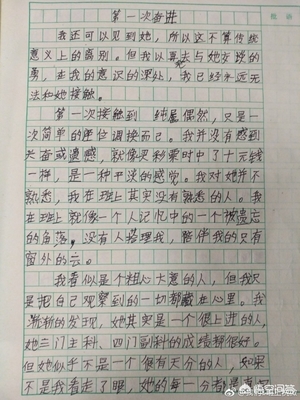 第一次奋进
我还可以见到她，所以这不算传统
意义上的离别。但我以再去与她交谈的
勇，在我的意识的深处，我已经永远无
法和她接触。
第一次接触到 纯属偶然，只是一
次简单的座位调换而已。我并没有感到
兴奋或遗憾，就像买彩票时中了十元钱
一样，是一种平淡的感觉。我对她并不
熟悉，我在班上其实没有熟悉的人。我
在班上就像一个人记忆中的一个被遗忘
的角落，没有人搭理我，陪伴我的只有
窗外的云。
我看似是个粗心大意的人，但我只
是把自己观察到的一切都藏在心里。我
渐渐的发现，她其实是一个很上进的人，
她三门主科、四门副科的成绩都很好。
但她似乎不是一个很有天分的人，如果
不是我看走了眼，她的每一分都是
悟空问答